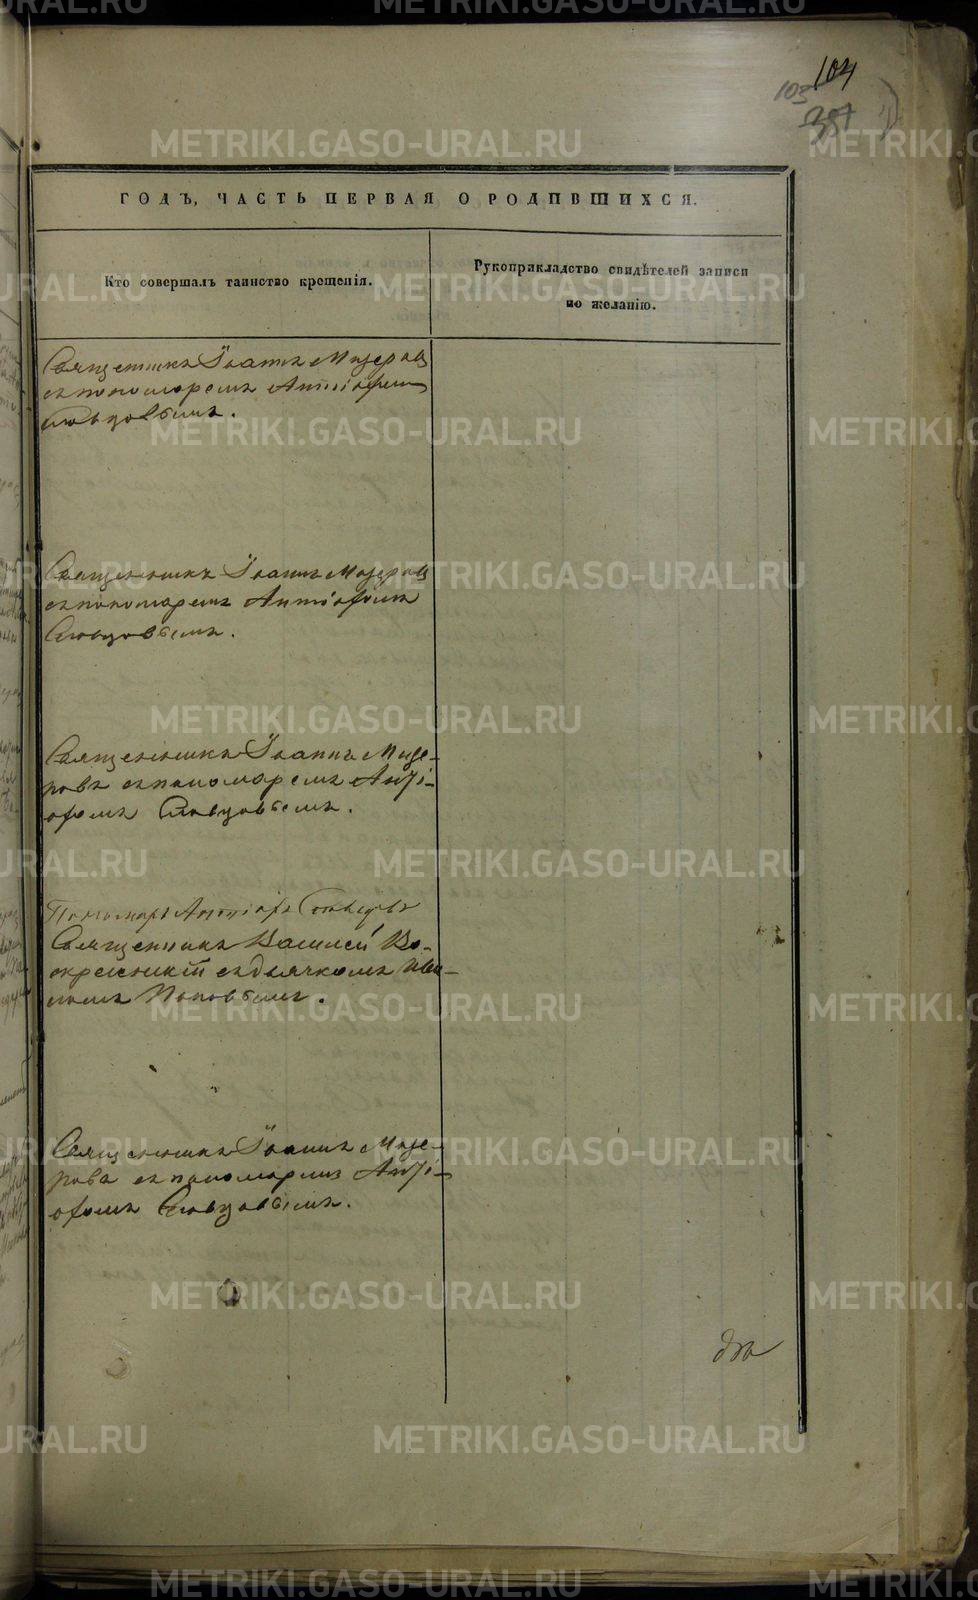 104
103
351
ГОДЪ, ЧАСТЬ ПЕРВАЯ О РОДИВШИХСЯ.
Кто совершалъ таинство крещенія.
Рукоприкладство свидѣтелей записи
по желанію.
Священникъ Іоаннъ Мизеровъ
съ пономаремъ Антіофомъ
Словцовымъ.
Священникъ Іоаннъ Мизеровъ
съ пономаремъ Антіофомъ
Словцовымъ.
Священникъ Іоаннъ Мизе-
ровъ съ пономаремъ Анті-
офомъ Словцовымъ.
Пономарь Антіофъ Словцовъ
Священникъ Василей Во-
скресенскій съ дьячкомъ
Поповымъ.
Священникъ Іоаннъ Мизе-
ровъ съ пономаремъ Анті-
офомъ Словцовымъ.
METRIKI.GASO-URAL.RU